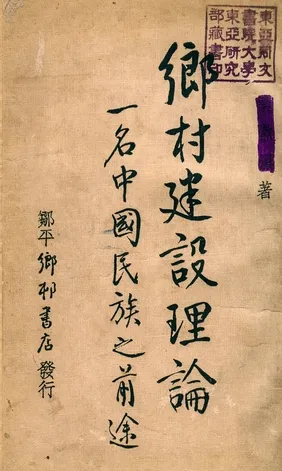 東亞同文
書院大學
東亞研究
部藏書印
著
鄉村建設理論
一名中國民族之前途
鄒平鄉邨書店發行